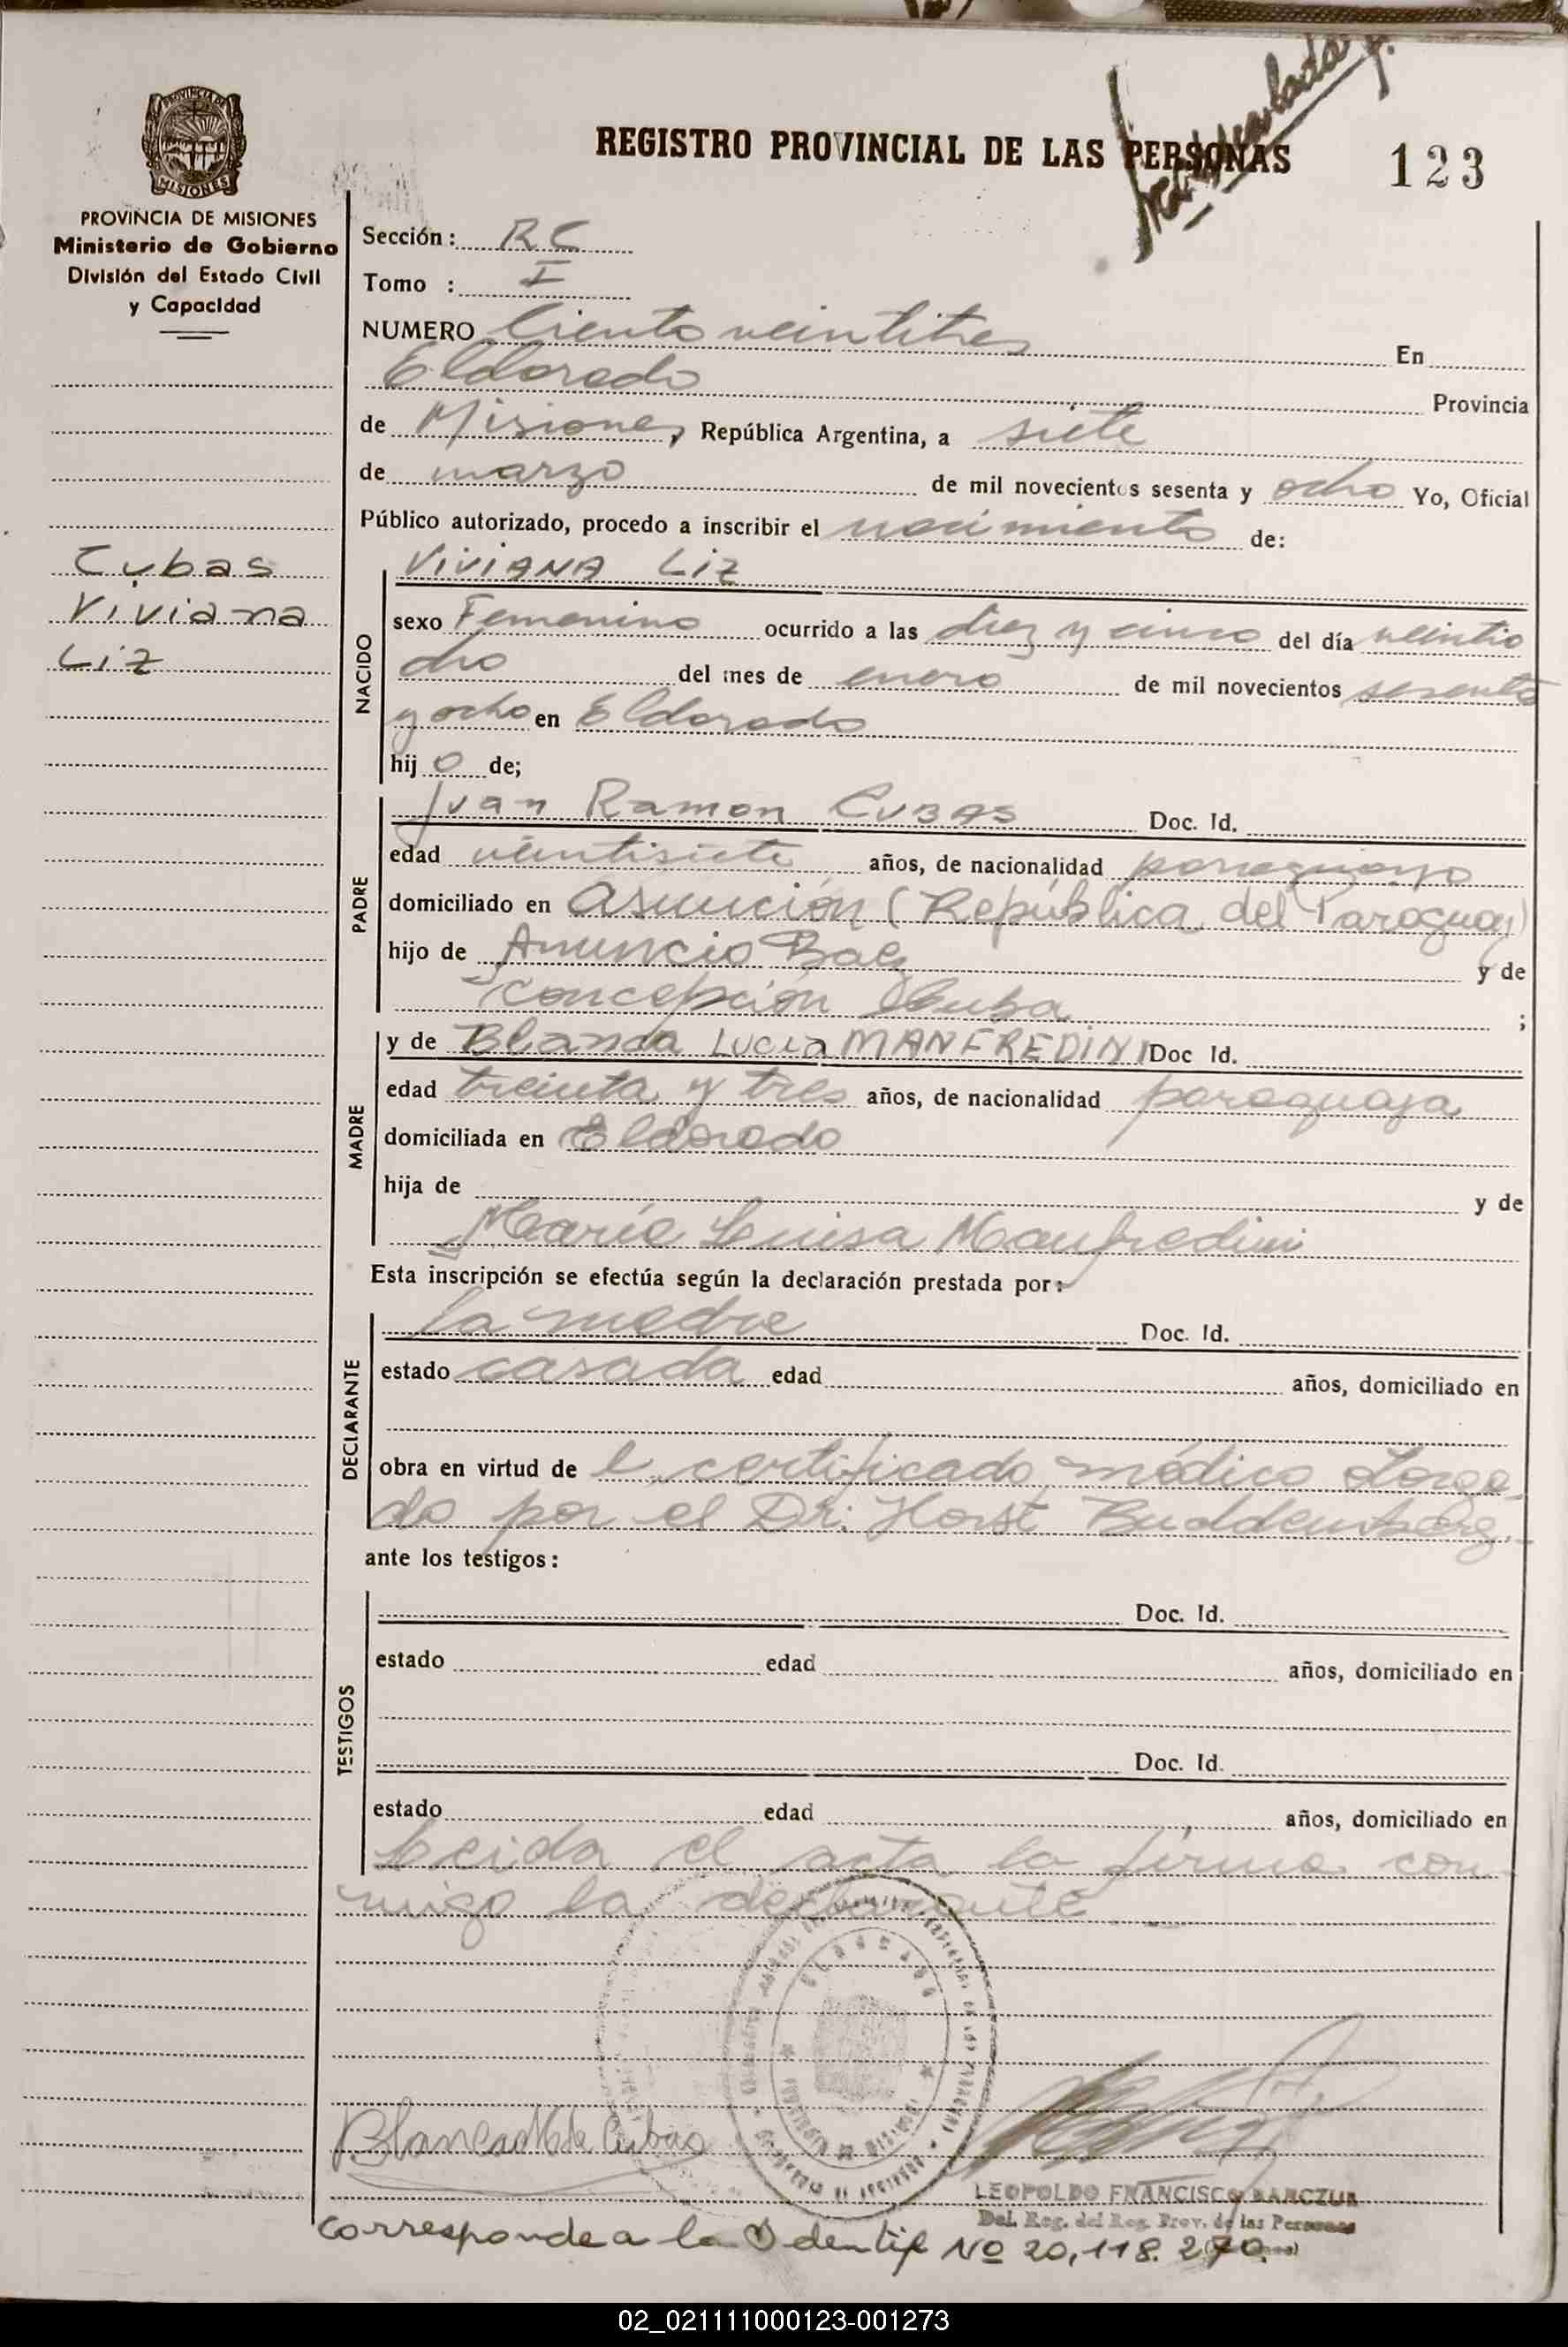 REGISTRO PROVINCIAL DE LAS PERSONAS
123
PROVINCIA DE MISIONES
PROVINCIA DE MISIONES
Ministerio de Gobierno
División del Estado Civil
y Capacidad
Sección: RC
Tomo : I
NUMERO Ciento veintitres En
Eldorado Provincia
de Misiones, República Argentina, a siete
de marzo de mil novecientos sesenta y ocho Yo, Oficial
Público autorizado, procedo a inscribir el nacimiento de:
Cubas
Viviana
Liz
NACIDO
VIVIANA LIZ
sexo Femenino ocurrido a las diez y cinco del día veintio
cho del mes de enero de mil novecientos sesenta
y ocho en Eldorado
hij o de;
PADRE
Juan Ramon CUBAS Doc. Id.
edad veintisiete años, de nacionalidad paraguayo
domiciliado en Asunción (República del Paraguay)
hijo de Anuncio Baez y de
Concepción ;
MADRE
y de Blanca Lucia MANFREDINI Doc Id.
edad treinta y tres años, de nacionalidad paraguaya
domiciliada en Eldorado
hija de y de
María Luisa Manfredini
Esta inscripción se efectúa según la declaración prestada por:
DECLARANTE
la madre Doc. Id.
estado casada edad años, domiciliado en
obra en virtud de l certificado médico otorga-
do por el Dr. Horst Buddenberg.-
ante los testigos:
TESTIGOS
Doc. Id.
estado edad años, domiciliado en
Doc. Id.
estado edad años, domiciliado en
Leida el acta la firma con-
migo la declarante
ELDORADO
Blanca M de Cubas
LEOPOLDO FRANCISCO
Del. Reg. del Reg. Prov. de las Personas
Corresponde a la Identif Nº 20,118.270
02_021111000123-001273